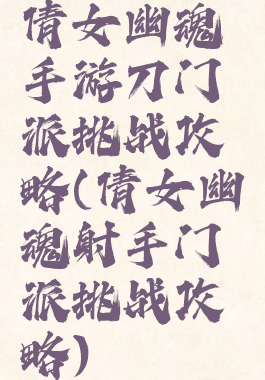 倩女幽魂
手游刀门
派挑战攻
略(倩女幽
魂射手门
派挑战攻
略)